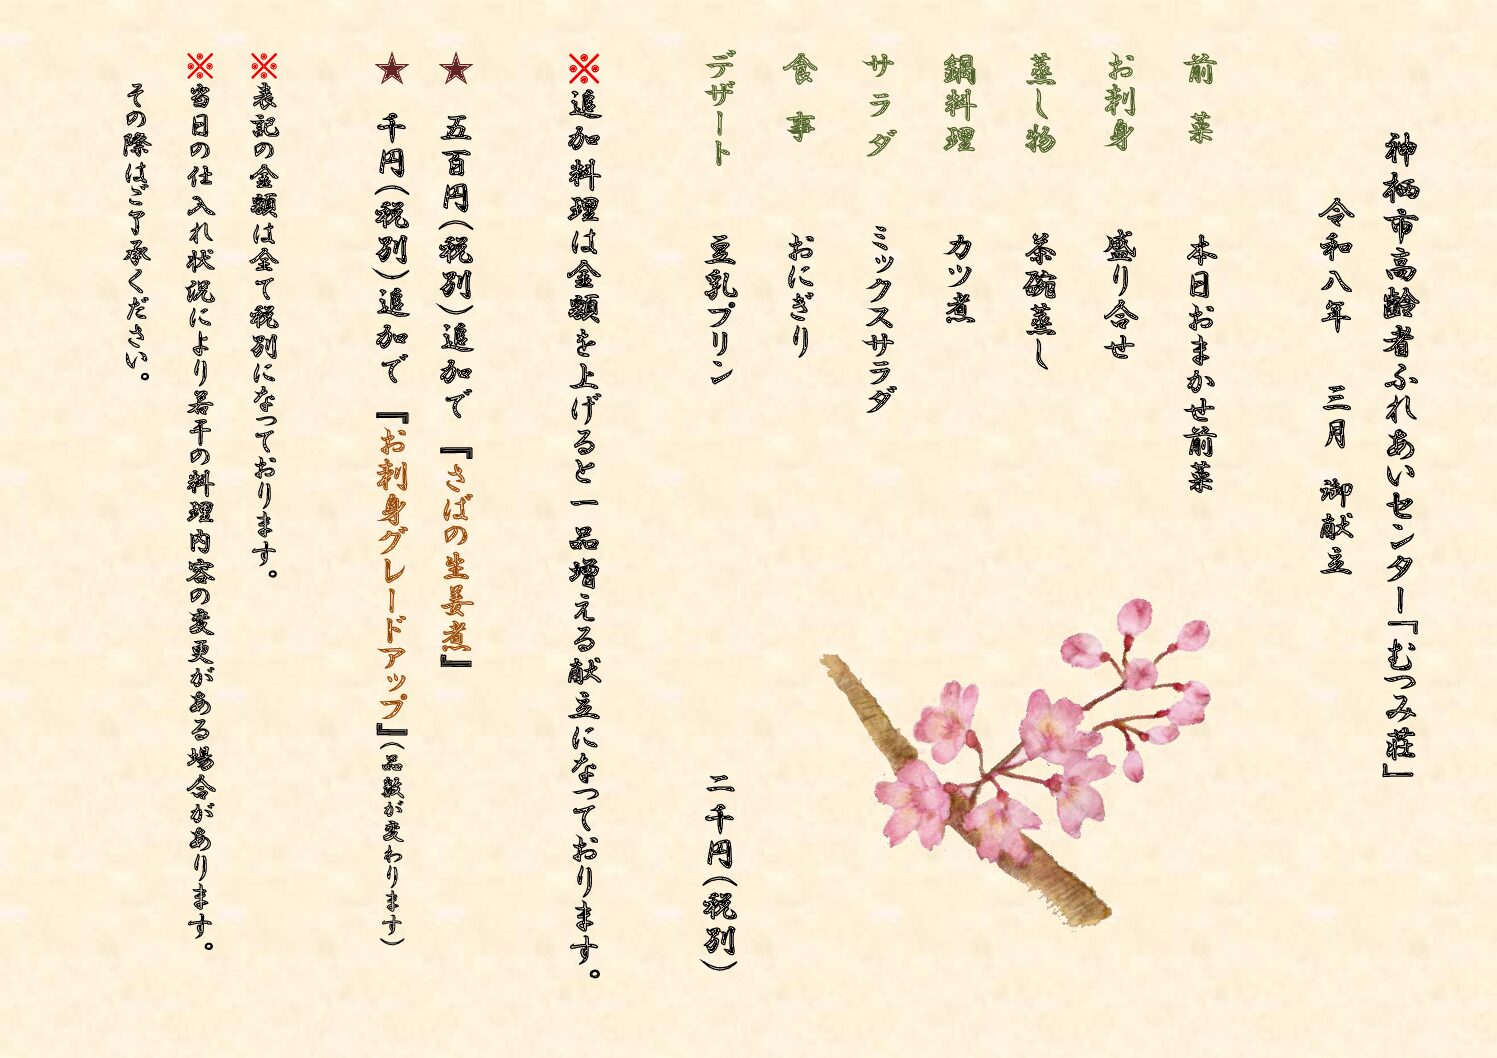 神栖市高齢者ふれあいセンター『むつみ荘』
令和八年　三月　御献立
前菜　本日おまかせ前菜
お刺身　盛り合せ
蒸し物　茶碗蒸し
鍋料理　カツ煮
サラダ　ミックスサラダ
食事　おにぎり
デザート　豆乳プリン　二千円(税別)
※追加料理は金額を上げると一品増える献立になっております。
★　五百円(税別)追加で『さばの生姜煮』
★　千円(税別)追加で『お刺身グレードアップ』(品数が変わります)
※表記の金額は全て税別になっております。
※当日の仕入れ状況により若干の料理内容の変更がある場合があります。
その際はご了承ください。